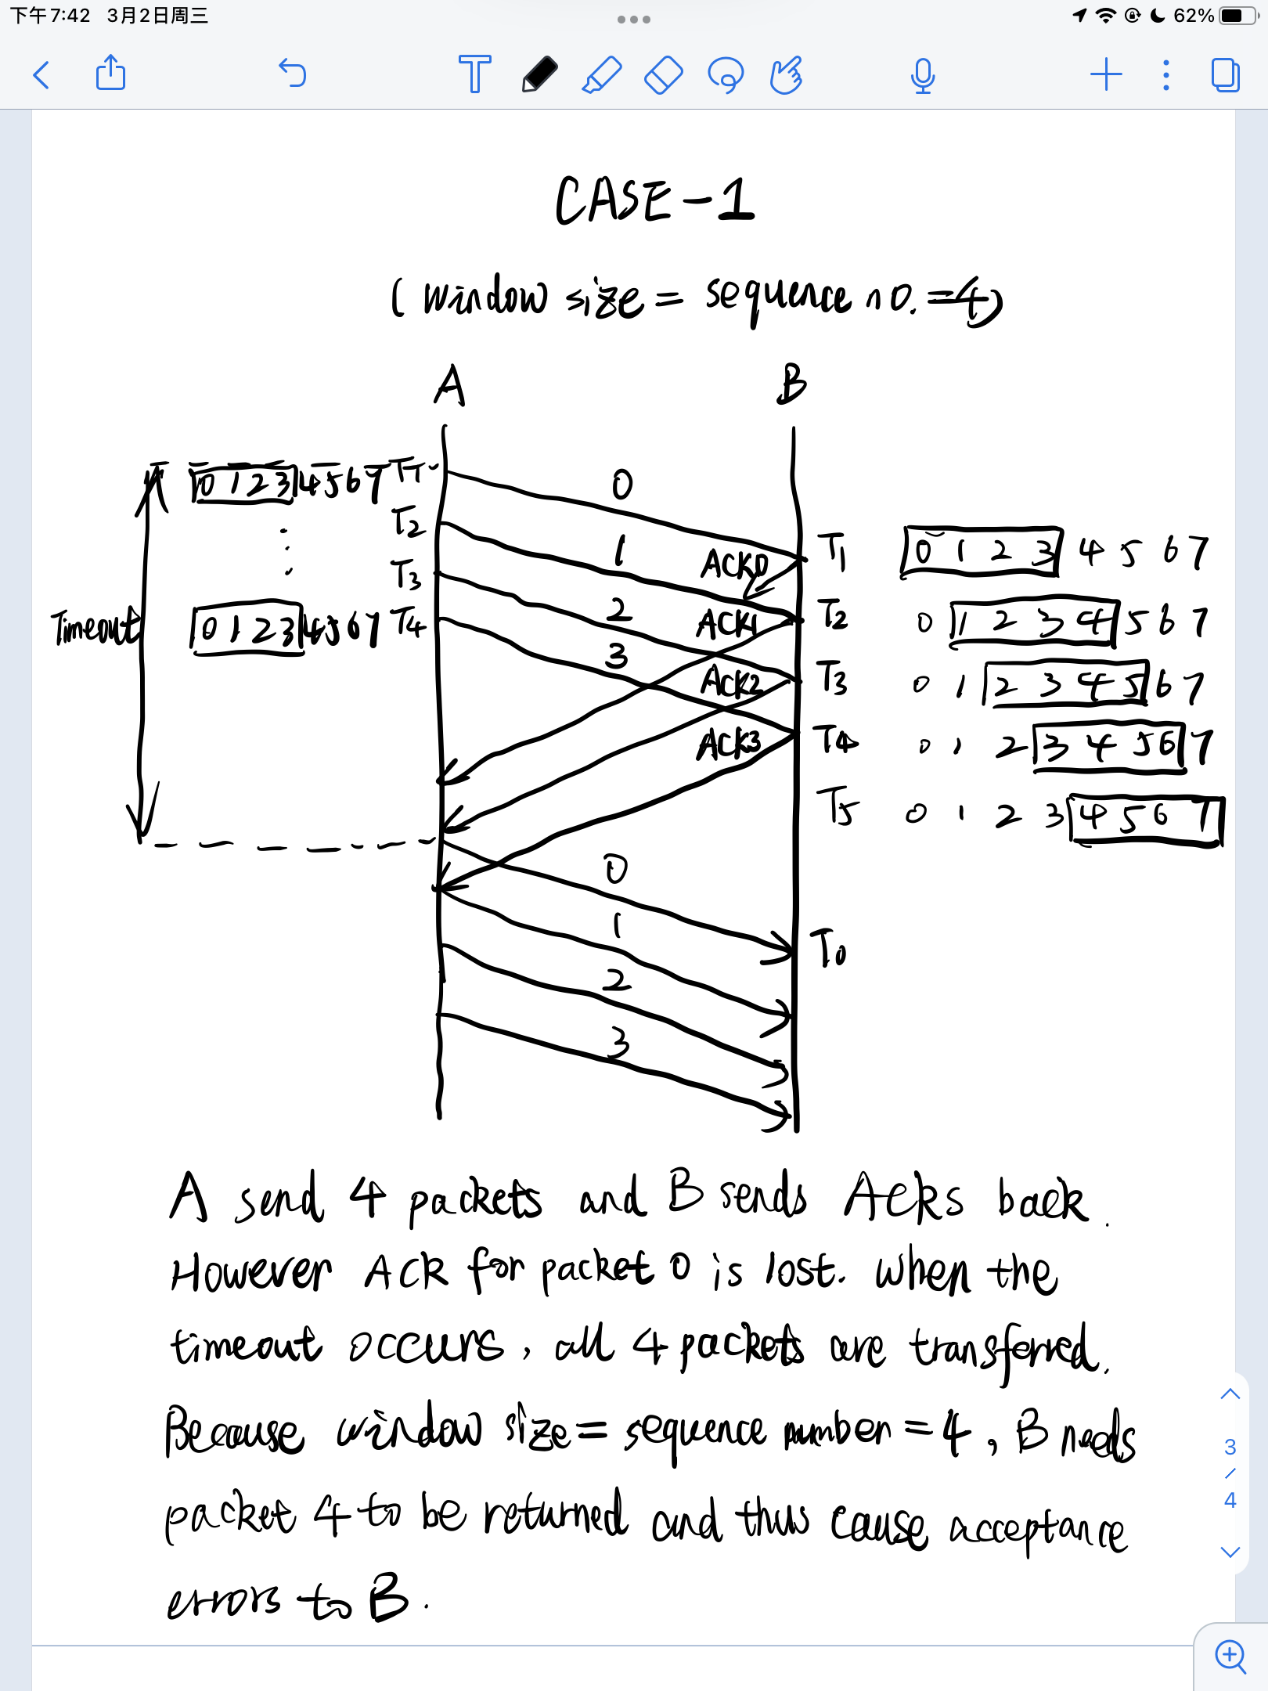 下午7:42 3月2日周三
62%
T
CASE-1
(window size = sequence no.=4)
A B
0 1 2 3 4 5 6 7 T1
0
T2
1
ACK0
T1 0 1 2 3 4 5 6 7
T3
2
Timeout
0 1 2 3 4 5 6 7 T4
ACK1
T2 0 1 2 3 4 5 6 7
3
ACK2
T3 0 1 2 3 4 5 6 7
ACK3
T4 0 1 2 3 4 5 6 7
T5 0 1 2 3 4 5 6 7
0
1
T0
2
3
A send 4 packets and B sends Acks back.
However ACK for packet 0 is lost. when the
timeout occurs, all 4 packets are transferred.
Because window size = sequence number = 4, B needs
packet 4 to be returned and thus cause acceptance
errors to B.
3
/
4